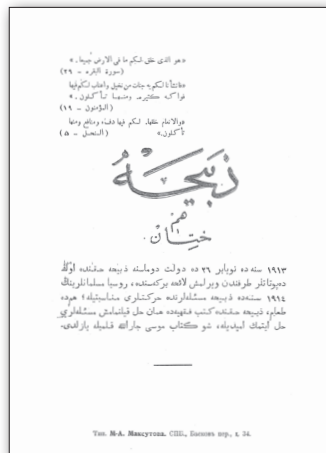 «هو الذى خلق لكم ما فى الارض جميعا.»
(سورة البقره – ٢٩)
«فانشأنا لكم به جنات من نخيل واعناب لكم فيها
فواكه كثيرة ومنها تأكلون.»
(المؤمنون – ١٩)
«والانعام خلقها. لكم فيها دفء ومنافع ومنها
تأكلون.» (النحل – ٥)
ذبيحه
هم
ختان.
١٩١٣ سنه ده نويابر ٢٦ ده دولت دوماسنه ذبيحه حقنده
ده پوتاتلر طرفندن ويرلمش لائحه بركه سنده، روسيا مسلمانلرينڭ
١٩١٤ سنه ده ذبيحه مسئله لرنده حركتلرى مناسبتيله؛ هم ده
طعام، ذبيحه حقنده كتب فقهيه ده همان حل قيلنمامش مسئله لرى
حل ايتمك اميديله، شو كتاب موسى جار الله قلميله يازلدى.
Тип. М-А. Максутова. СПБ., Басковъ пер., д. 34.